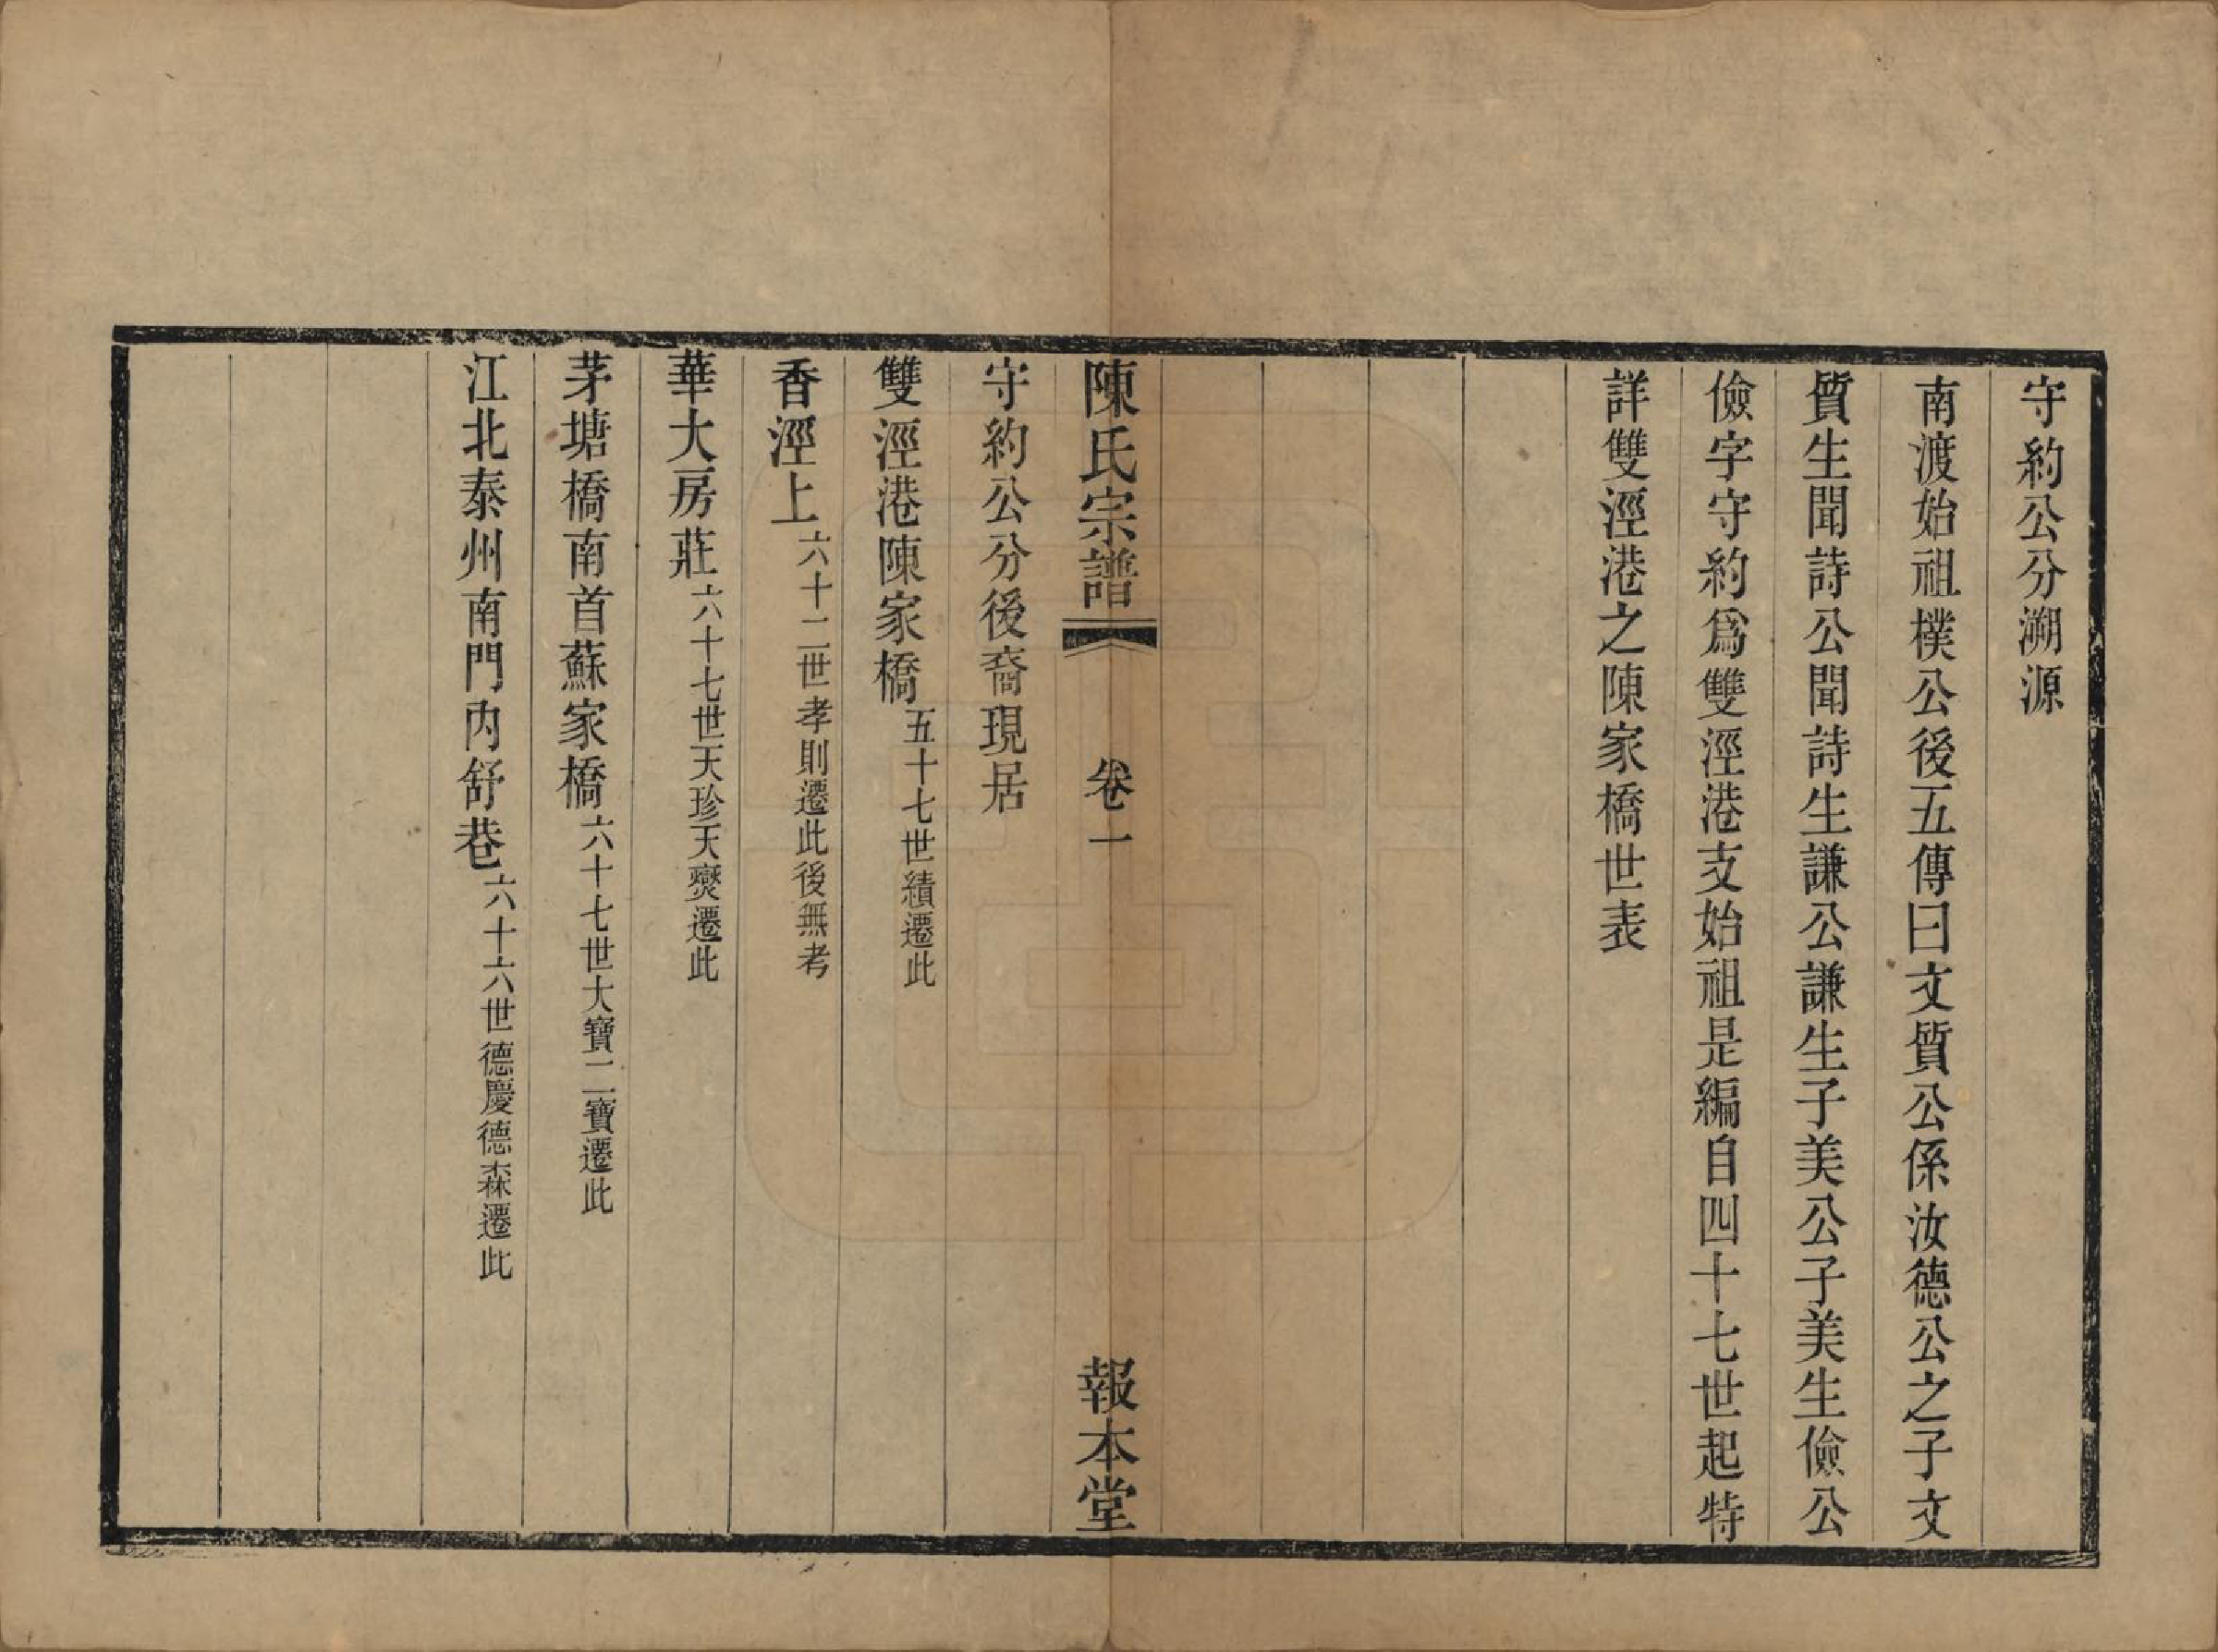 守約公分溯源
南渡始祖樸公後五傳曰文質公係汝德公之子文
質生聞詩公聞詩生謙公謙生子美公子美生儉公
儉字守約爲雙涇港支始祖是編自四十七世起特
詳雙涇港之陳家橋世表
陳氏宗譜 卷一 報本堂
守約公分後裔現居
雙涇港陳家橋五十七世績遷此
香涇上六十二世孝則遷此後無考
華大房莊六十七世天珍天爕遷此
茅塘橋南首蘇家橋六十七世大寶二寶遷此
江北泰州南門內舒巷六十六世德慶德森遷此